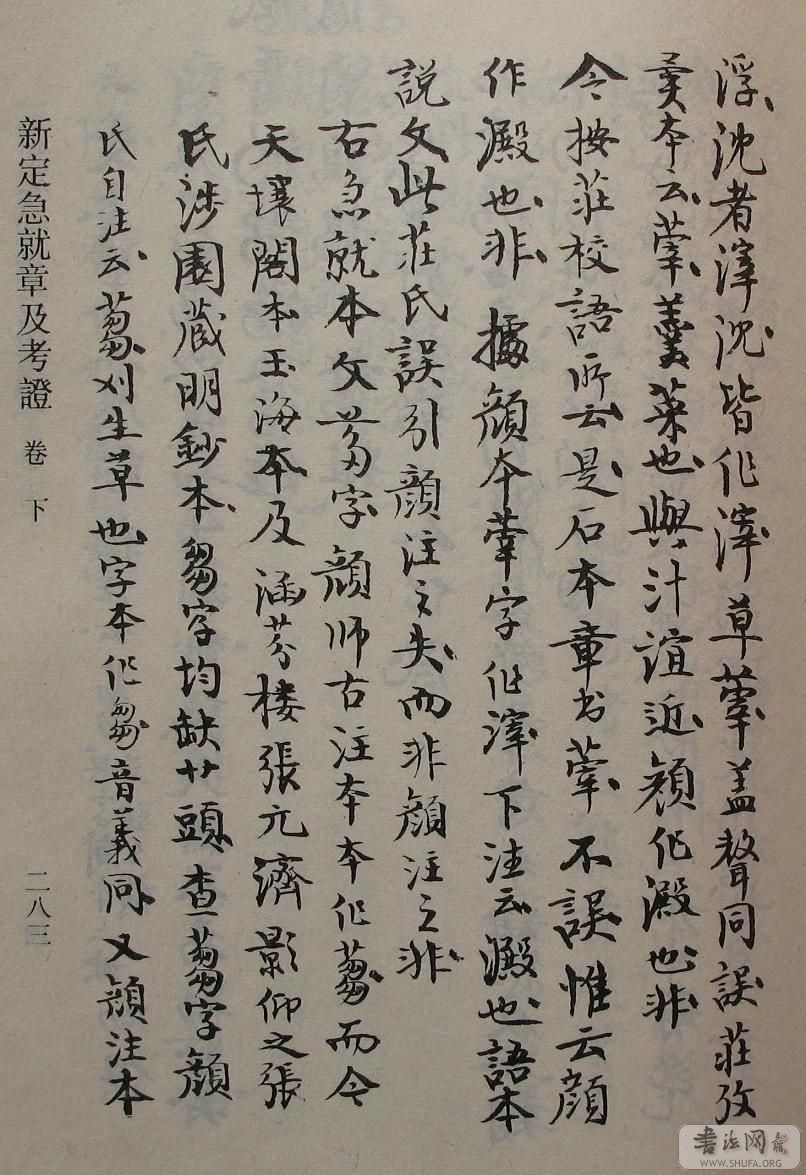 浮沈者滓沈皆作滓草葷蓋聲同誤莊孜
異本云葷羹菜也與汁誼近顏作澱也非
今按莊校語所云是石本章书葷不誤惟云顏
作澱也非據顏本葷字作滓下注云澱也語本
說文此莊氏誤引顏注之失而非顏注之非
右急就本文芻字顏师古注本本作蒭而今
天壤閣本玉海本及涵芬楼張元濟影仰之張
氏涉園藏明鈔本芻字均缺廾頭查蒭字顏
氏自注云蒭刈生草也字本作芻音義同又顏注本
新定急就章及考證 卷下 二八三
书法网
WWW.SHUFA.ORG